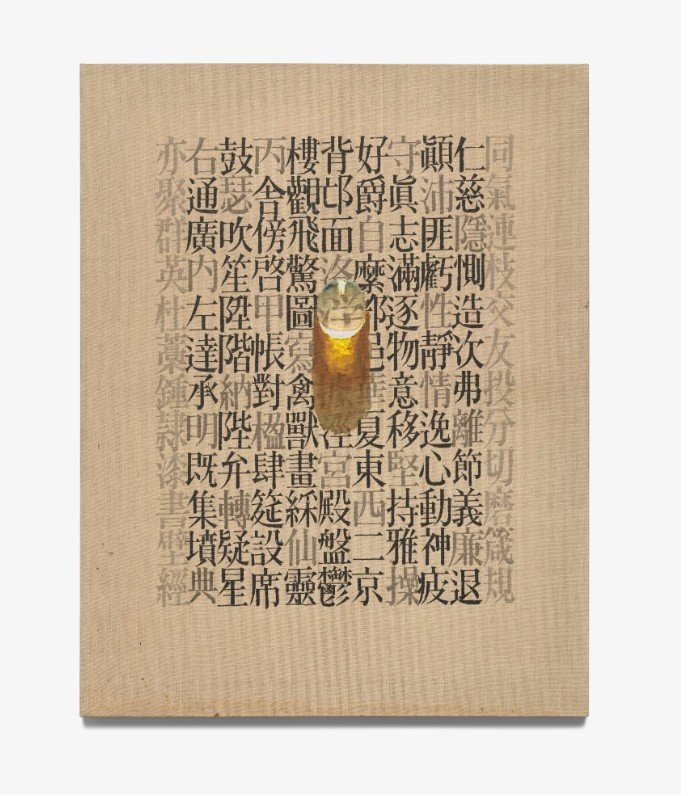 同氣連枝交友投分切磨箴規
仁慈隱惻造次弗離節義廉退
顚沛匪虧性靜情逸心動神疲
守眞志滿逐物意移堅持雅操
好爵自縻都邑華夏東西二京
背邙面洛浮據涇宮殿盤鬱
樓觀飛驚圖寫禽獸畫綵仙靈
丙舍傍啓甲帳對楹肆筵設席
鼓瑟吹笙陞階納陛弁轉疑星
右通廣內左達承明既集墳典
亦聚群英杜藁鍾隸漆書壁經